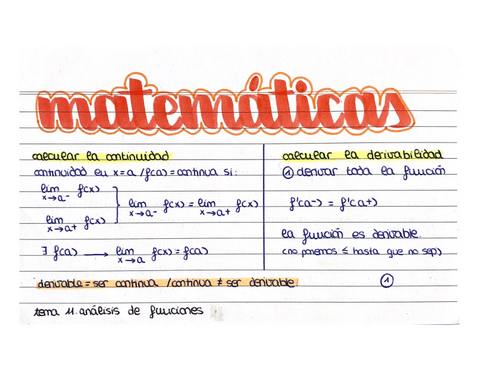 matemáticas
calcular la continuidad
continuidad en x=a / f(a) = continua si:
lim f(x)
x→a-
lim f(x)
x→a+
lim f(x) = lim f(x)
x→a- x→a+
∃ f(a) → lim f(x) = f(a)
x→a
calcular la derivabilidad
① derivar toda la función
f'(a-) = f'(a+)
la función es derivable.
(no ponemos ≤ hasta que no sep)
derivable = ser continua / continua ≠ ser derivable.
①
tema 11. análisis de funciones.